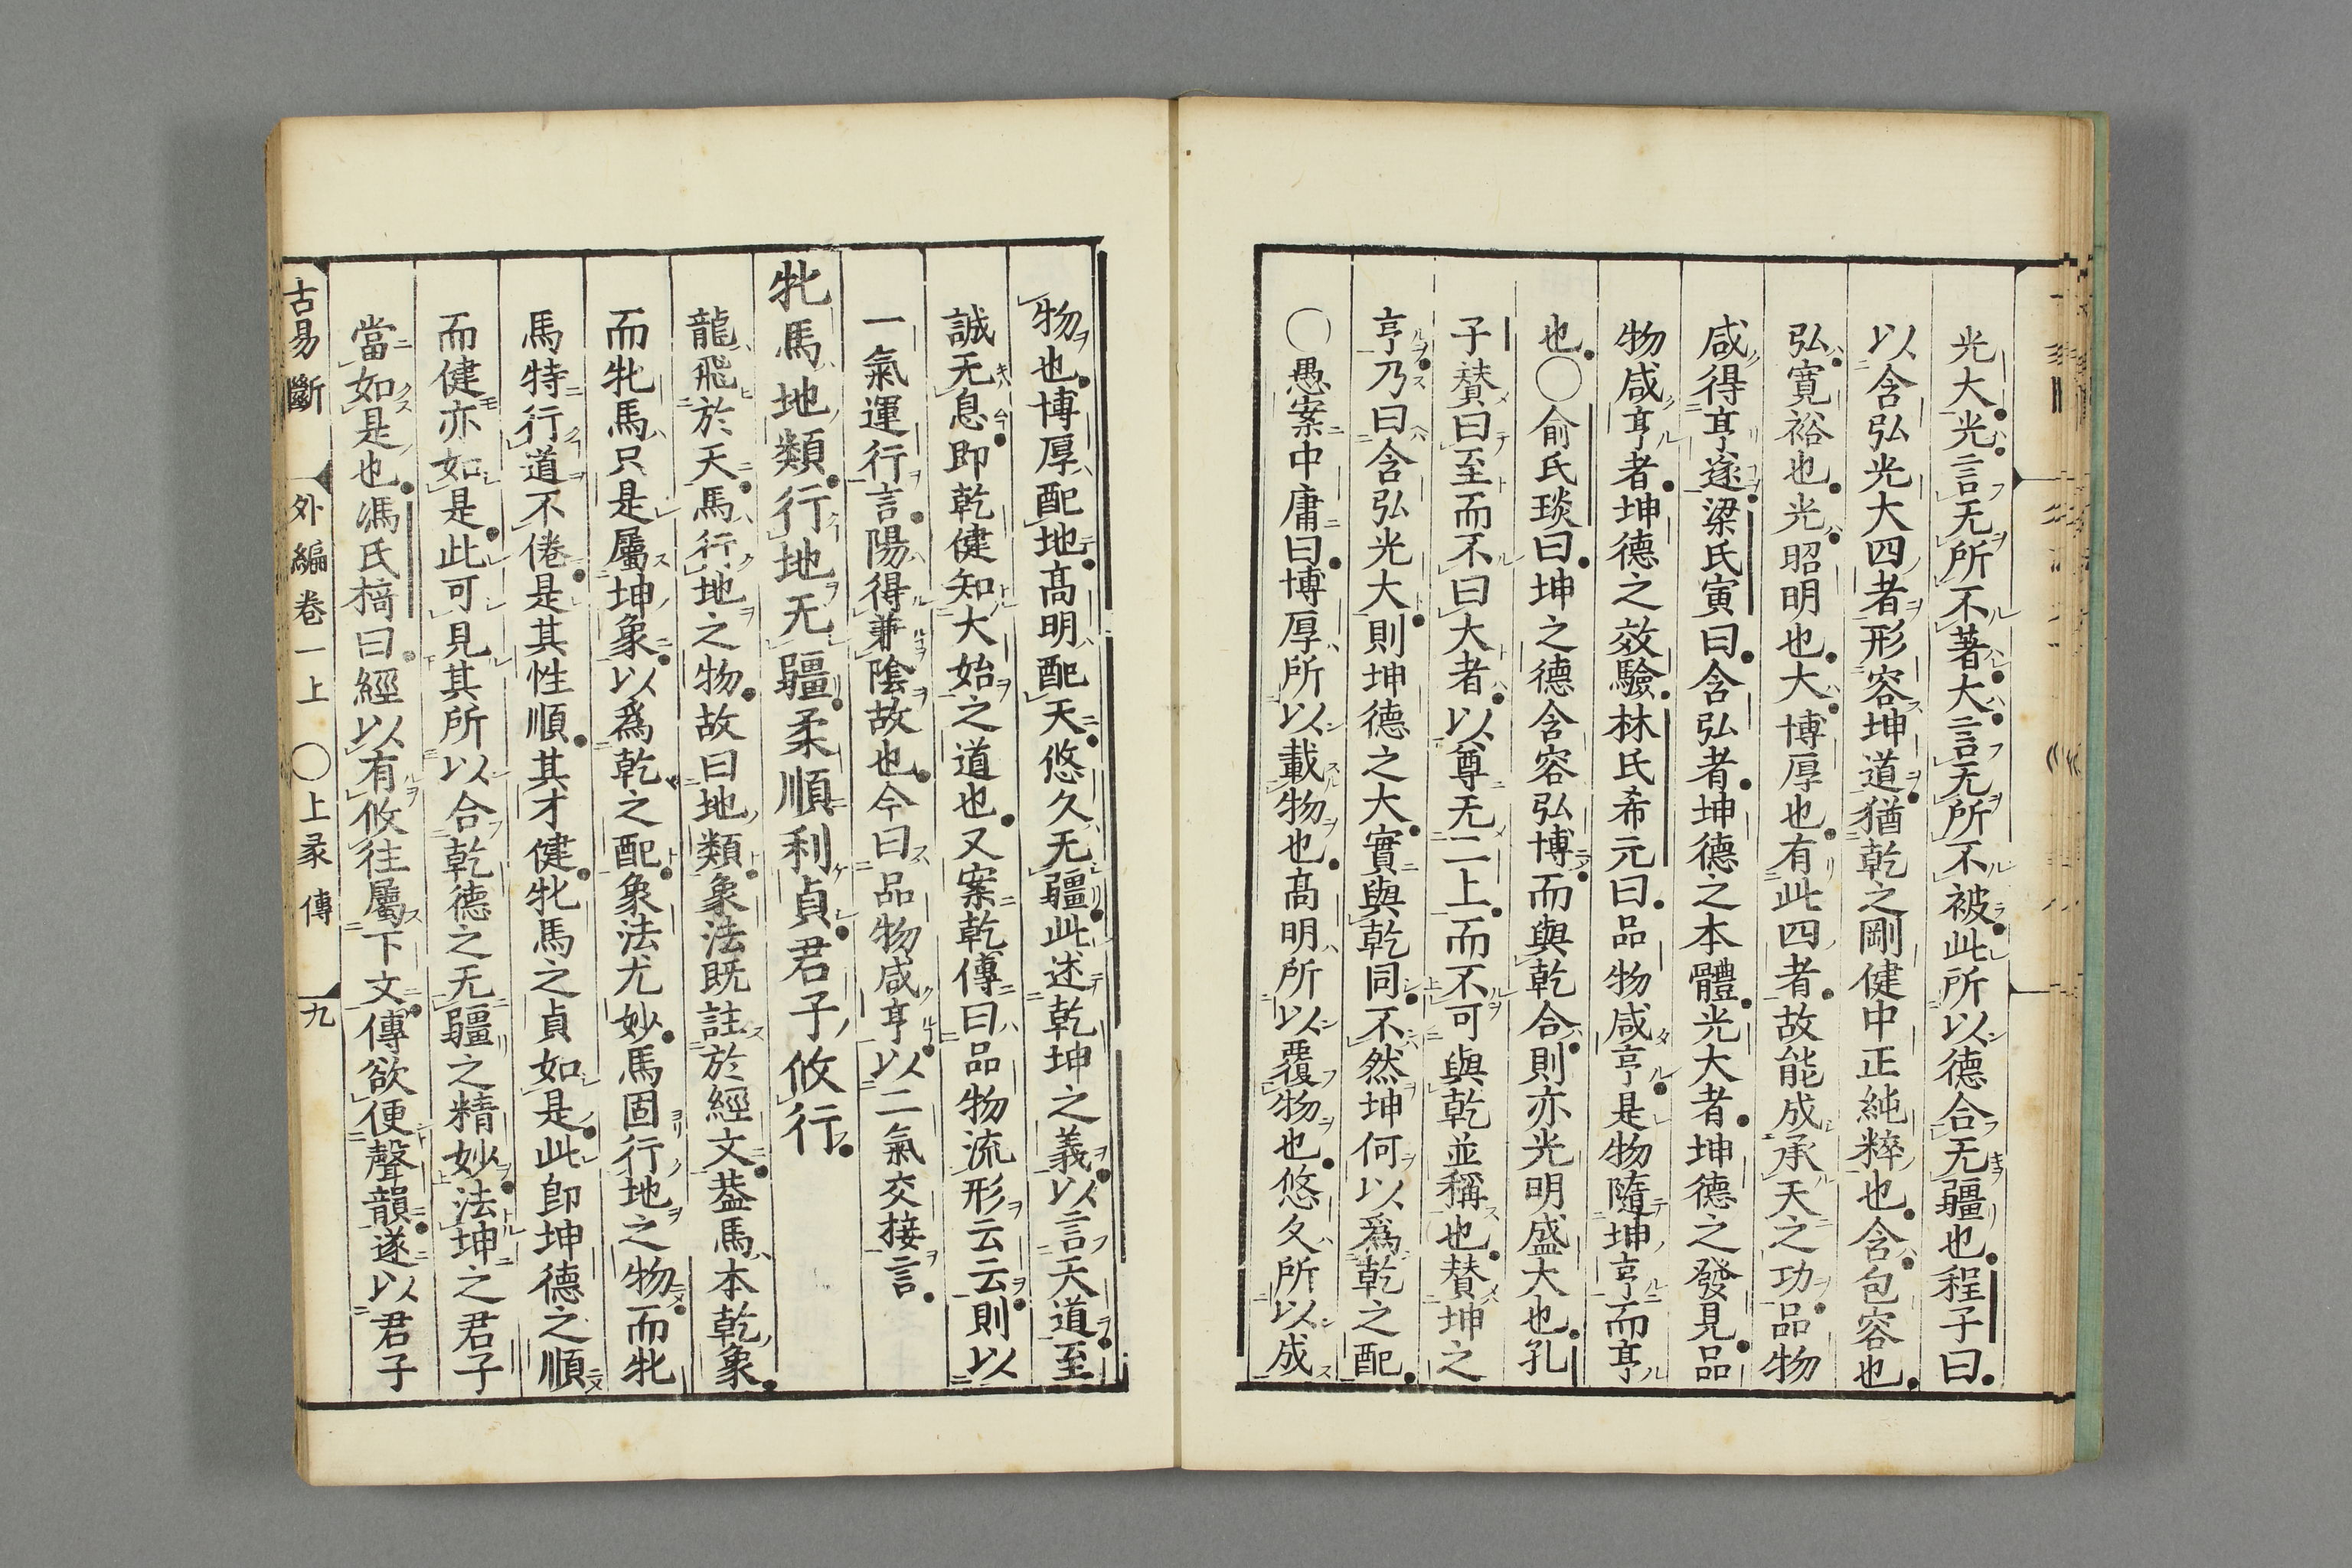 光大光言无所不著大言无所不被此所以德合无疆也程子曰
以含弘光大四者形容坤道猶乾之剛健中正純粹也含包容也
弘寛裕也光昭明也大博厚也有此四者故能成承天之功品物
咸得亨遂梁氏寅曰含弘者坤德之本體光大者坤德之發見品
物咸亨者坤德之效驗林氏希元曰品物咸亨是物隨坤亨而亨
也〇俞氏琰曰坤之德含容弘博而與乾合則亦光明盛大也孔
子賛曰至而不曰大者以尊无二上而不可與乾並稱也賛坤之
亨乃曰含弘光大則坤德之大實與乾同不然坤何以爲乾之配
〇愚案中庸曰博厚所以載物也髙明所以覆物也悠久所以成
物也博厚配地髙明配天悠久无疆此述乾坤之義以言天道至
誠无息即乾健知大始之道也又案乾傳曰品物流形云云則以
一氣運行言陽得兼陰故也今曰品物咸亨以二氣交接言
牝馬地類行地无疆柔順利貞君子攸行
龍飛於天馬行地之物故曰地類象法既註於經文葢馬本乾象
而牝馬只是屬坤象以爲乾之配象法尤妙馬固行地之物而牝
馬特行道不倦是其性順其才健牝馬之貞如是此卽坤德之順
而健亦如是此可見其所以合乾德之无疆之精妙法坤之君子
當如是也馮氏椅曰經以有攸往屬下文傳欲便聲韻遂以君子
古易斷 外編卷一上 〇上彖傳 九